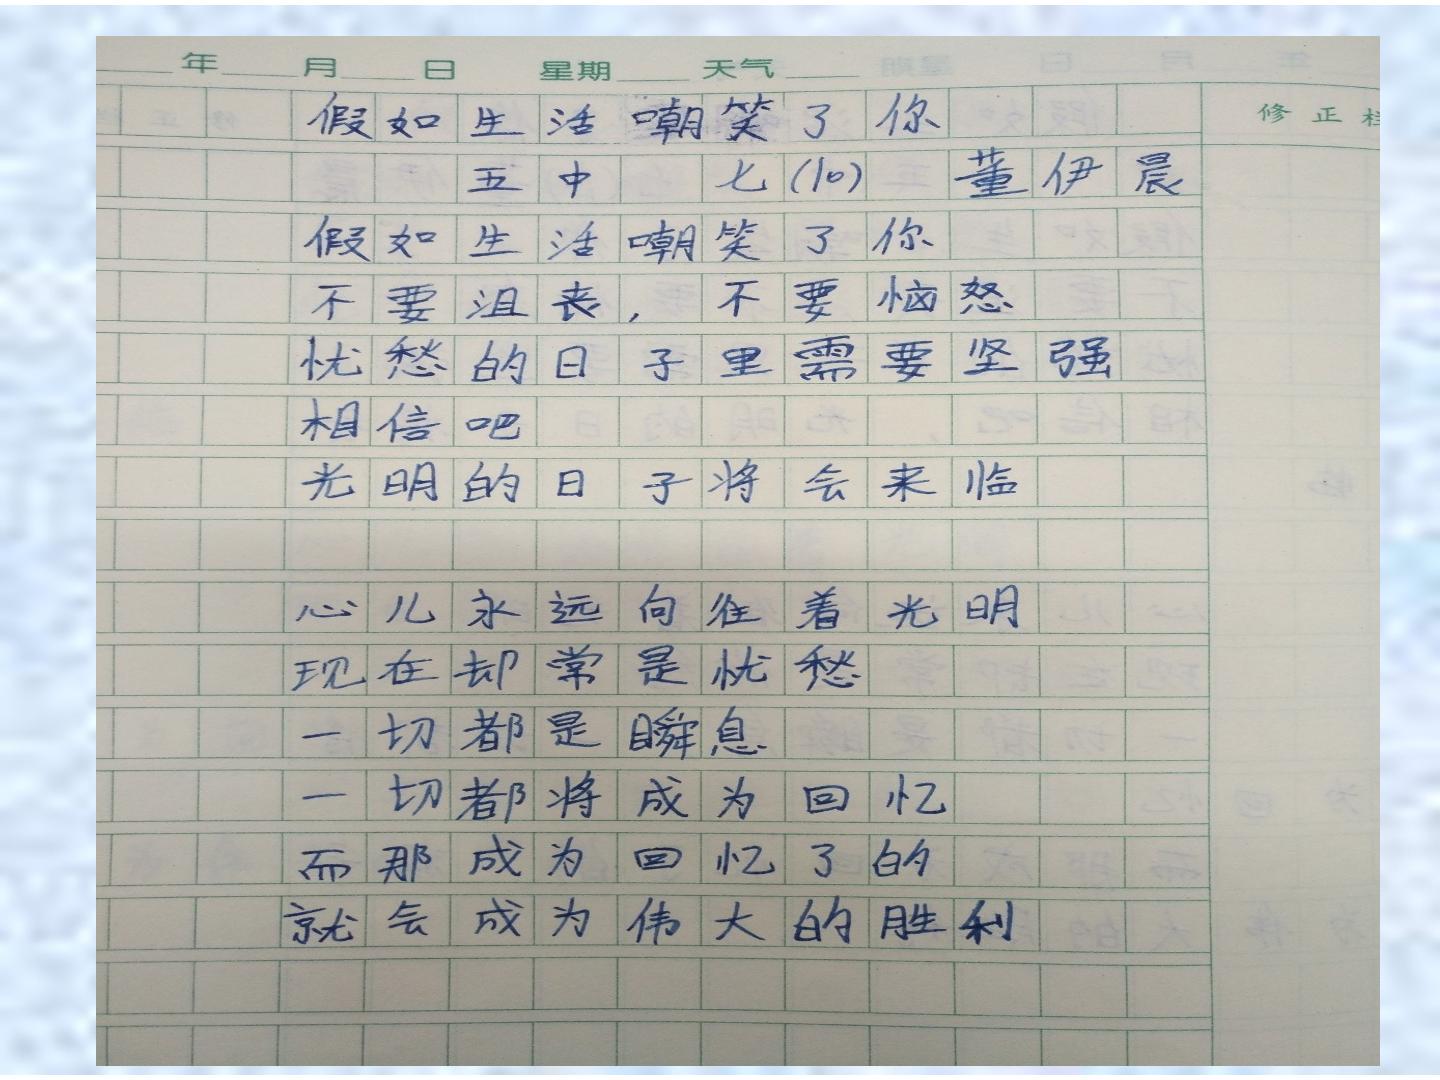 年 月 日 星期 天气
修正栏
假如生活嘲笑了你
五中 七(10) 董伊晨
假如生活嘲笑了你
不要沮丧，不要恼怒
忧愁的日子里需要坚强
相信吧
光明的日子将会来临
心儿永远向往着光明
现在却常是忧愁
一切都是瞬息
一切都将成为回忆
而那成为回忆了的
就会成为伟大的胜利